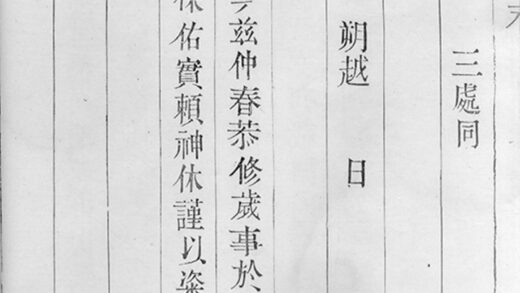 三處同
朔越 日
兹仲春恭修歲事於
佑實賴神休謹以粢